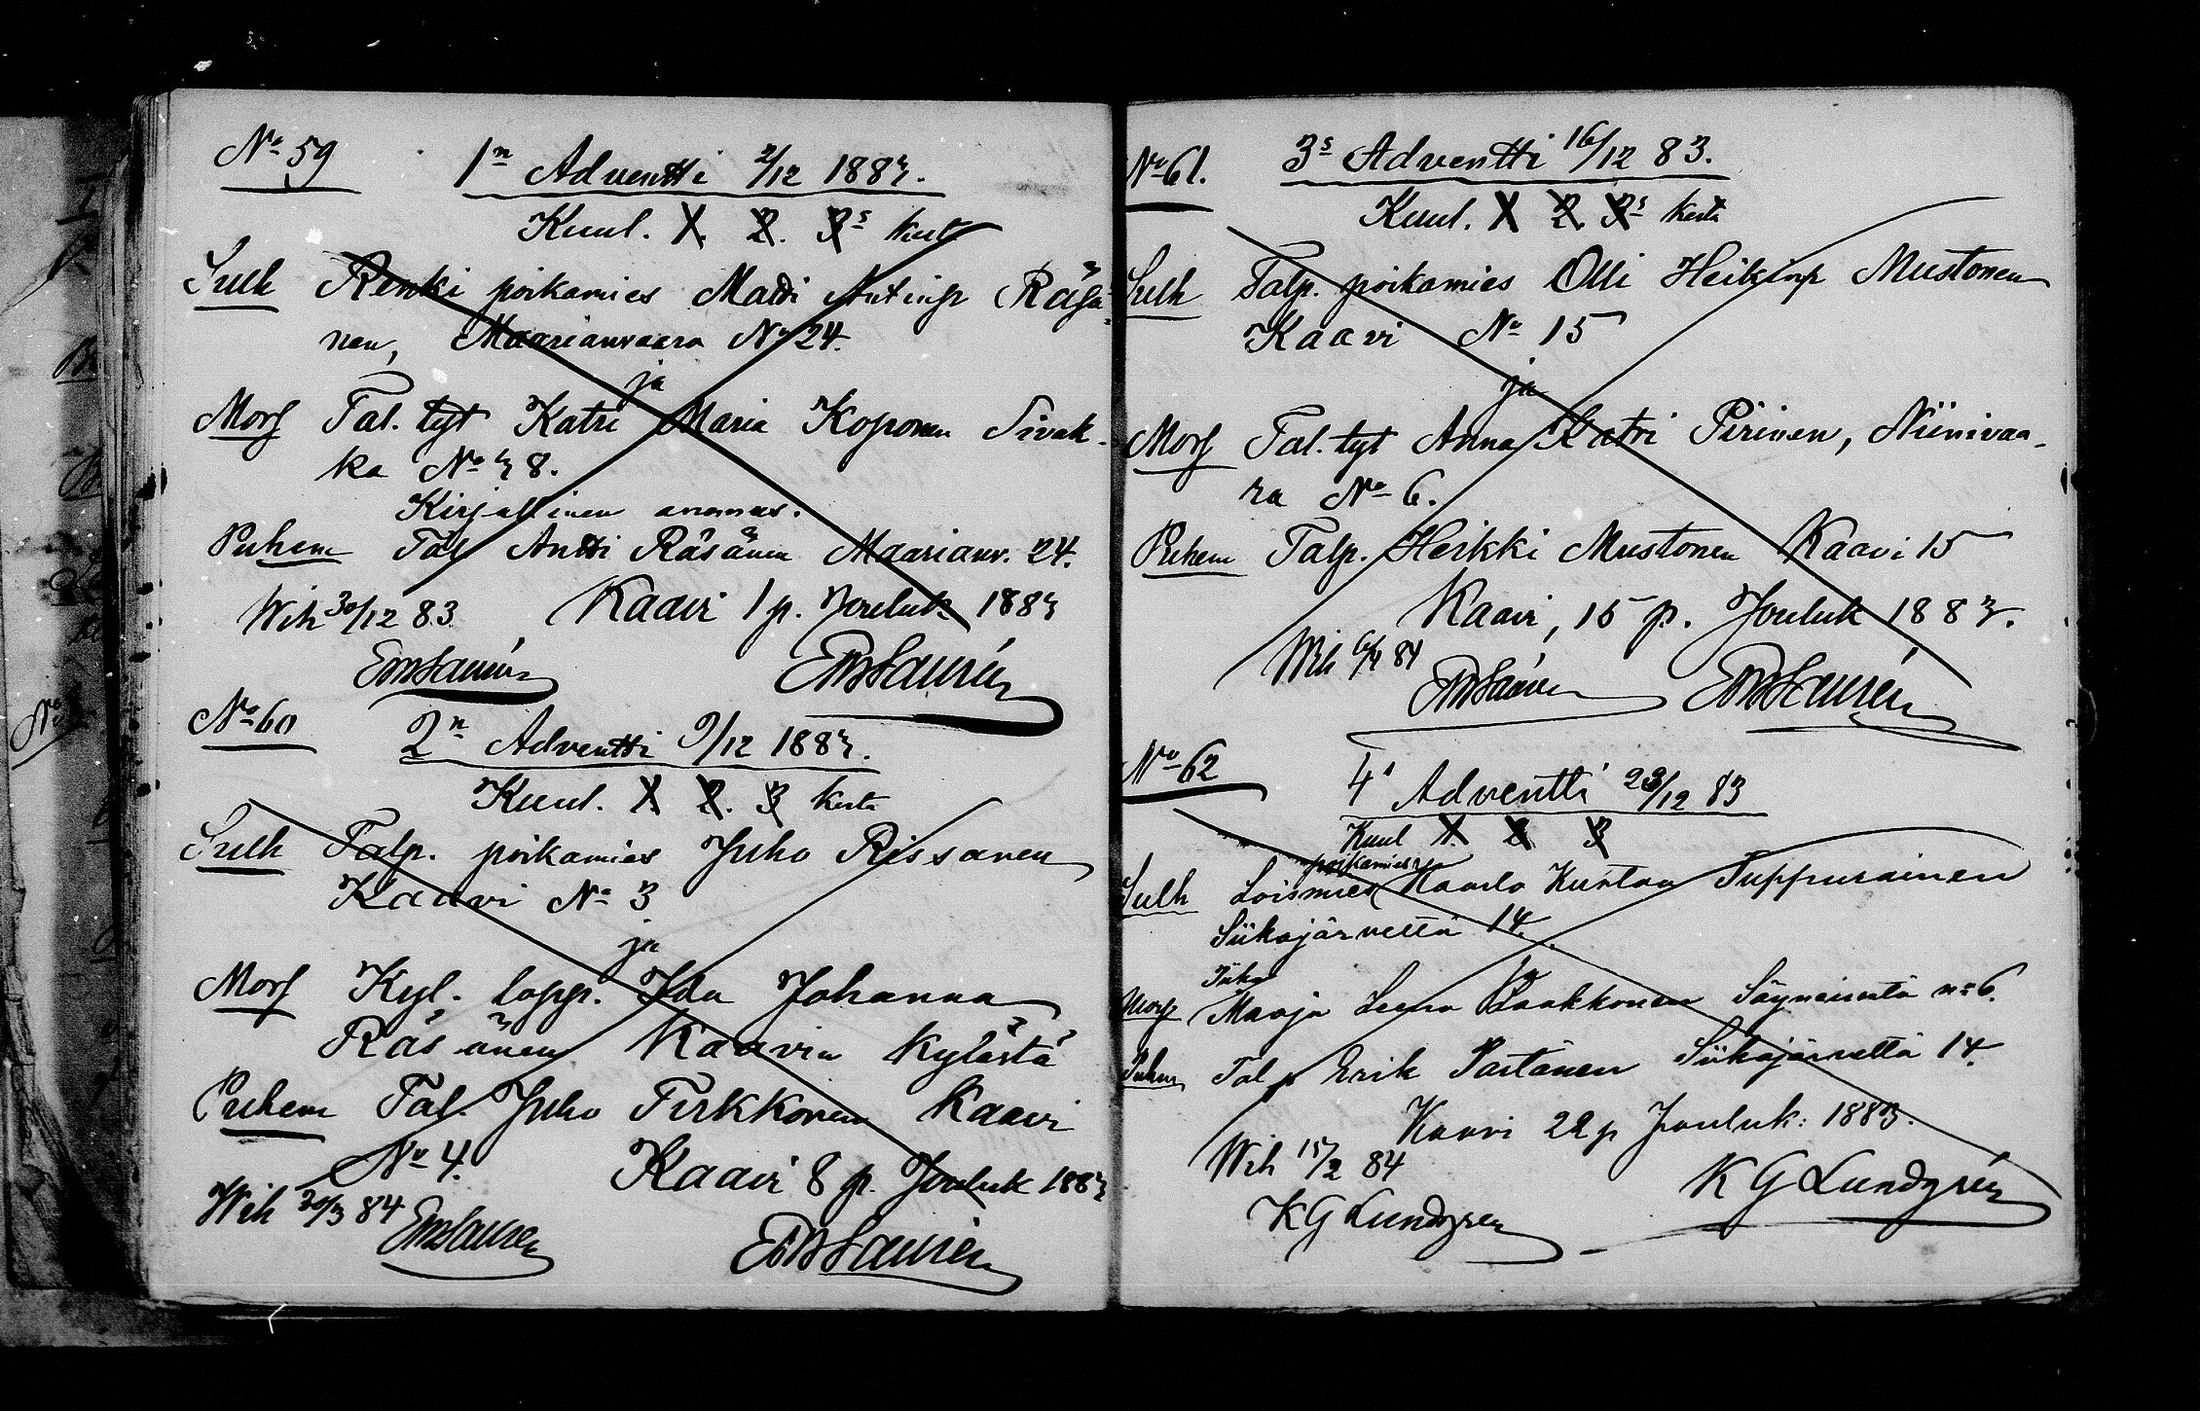 No 59
1n Adventti 2/12 1883.
Kuul. 1. 2. 3s kerta
Sulh Renki poikamies Matti Antinp Räsä-
nen, Maarianvaara No 24.
ja
Morf Tal. tyt Katri Maria Koponen Sivak-
ka No 38.
Kirjallinen anomus.
Puhem Tal Antti Räsänen Maarianv. 24.
Wih 30/12 83 Kaavi 1 p. Jouluk 1883
No 60
2n Adventti 9/12 1883.
Kuul. 1. 2. 3 kerta
Sulh Talp. poikamies Juho Rissanen
Kaavi No 3
ja
Morf Kyl. lapp. Ida Johanna
Räsänen Kaavin kylästä
Puhem Tal. Juho Tirkkonen Kaavi
No 4. Kaavi 8 p. Jouluk 1883
Wih 30/3 84
No 61.
3s Adventti 16/12 83.
Kuul. 1 2. 3s kerta
Sulh Talp. poikamies Olli Heikinp Mustonen
Kaavi No 15
ja
Morf Tal. tyt Anna Katri Pirinen, Niinivaa-
ra No 6.
Puhem Talp. Heikki Mustonen Kaavi 15
Kaavi, 15 p. Jouluk 1883.
Wih 84
No 62
4s Adventti 23/12 83
Kuul 1. 2 3
poikamies
Sulh Loismies Kaarlo Kustaa Tuppurainen
Siikajärveltä 14.
Morf Maaja Leena Laakkonen Säyneisestä no 6.
Puhem Talp Erik Partanen Siikajärveltä 14
Kaavi 22 p Jouluk: 1883.
Wih 15/2 84
K G Lundgrén
K G Lundgren